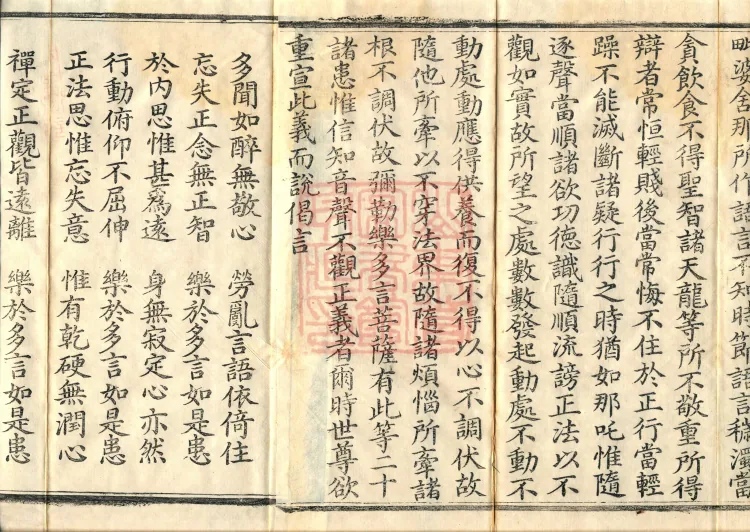 毗婆舍那所作語言不知時節語言穢濁當
貪飲食不得聖智諸天龍等所不敬重所得
辯者常恒輕賤後當常悔不住於正行當輕
躁不能滅斷諸疑行行之時猶如那吒惟隨
逐聲當順諸欲功德識隨順流謗正法以不
觀如實故所望之處數數發起動處不動不
動處動應得供養而復不得以心不調伏故
隨他所牽以不穿法界故隨諸煩惱所牽諸
根不調伏故彌勒樂多言菩薩有此等二十
諸患惟信知音聲不觀正義者爾時世尊欲
重宣此義而說偈言
多聞如醉無敬心　勞亂言語依倚住
忘失正念無正智　樂於多言如是患
於內思惟甚爲遠　身無寂定心亦然
行動俯仰不屈伸　樂於多言如是患
正法思惟忘失意　惟有乾硬無潤心
禪定正觀皆遠離　樂於多言如是患